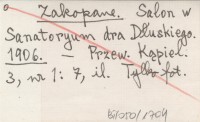 Zakopane. Salon w
Sanatoryum dra Dłuskiego.
1906. — Przew. Kąpiel.
3, nr 1: 7, il. Tylko fot.